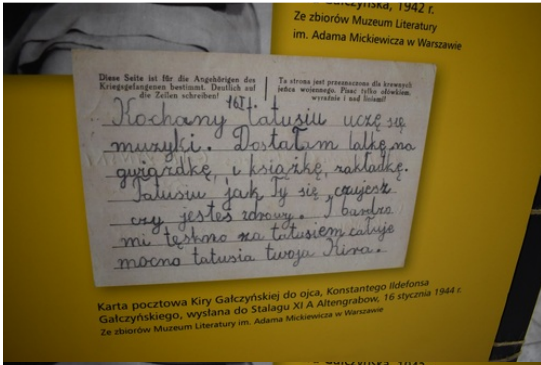 Gałczyńska, 1942 r.
Ze zbiorów Muzeum Literatury
im. Adama Mickiewicza w Warszawie
Diese Seite ist für die Angehörigen des
Kriegsgefangenen bestimmt. Deutlich auf
die Zeilen schreiben!
Ta strona jest przeznaczona dla krewnych
jeńca wojennego. Pisać tylko ołówkiem,
wyraźnie i nad liniami!
Kochany tatusiu uczę się
muzyki. Dostałam lalkę na
gwiazdkę, i książkę, zakładkę.
Tatusiu jak Ty się czujesz
czy jesteś zdrowy. I bardzo
mi tęskno za tatusiem całuje
mocno tatusia twoja Kira.
Karta pocztowa Kiry Gałczyńskiej do ojca, Konstantego Ildefonsa
Gałczyńskiego, wysłana do Stalagu XI A Altengrabow, 16 stycznia 1944 r.
Ze zbiorów Muzeum Literatury im. Adama Mickiewicza w Warszawie